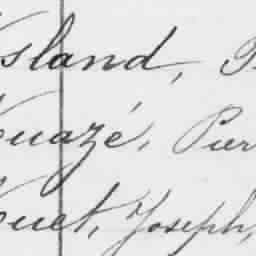 sland, P
ouazé, Pier
ouet, Joseph,